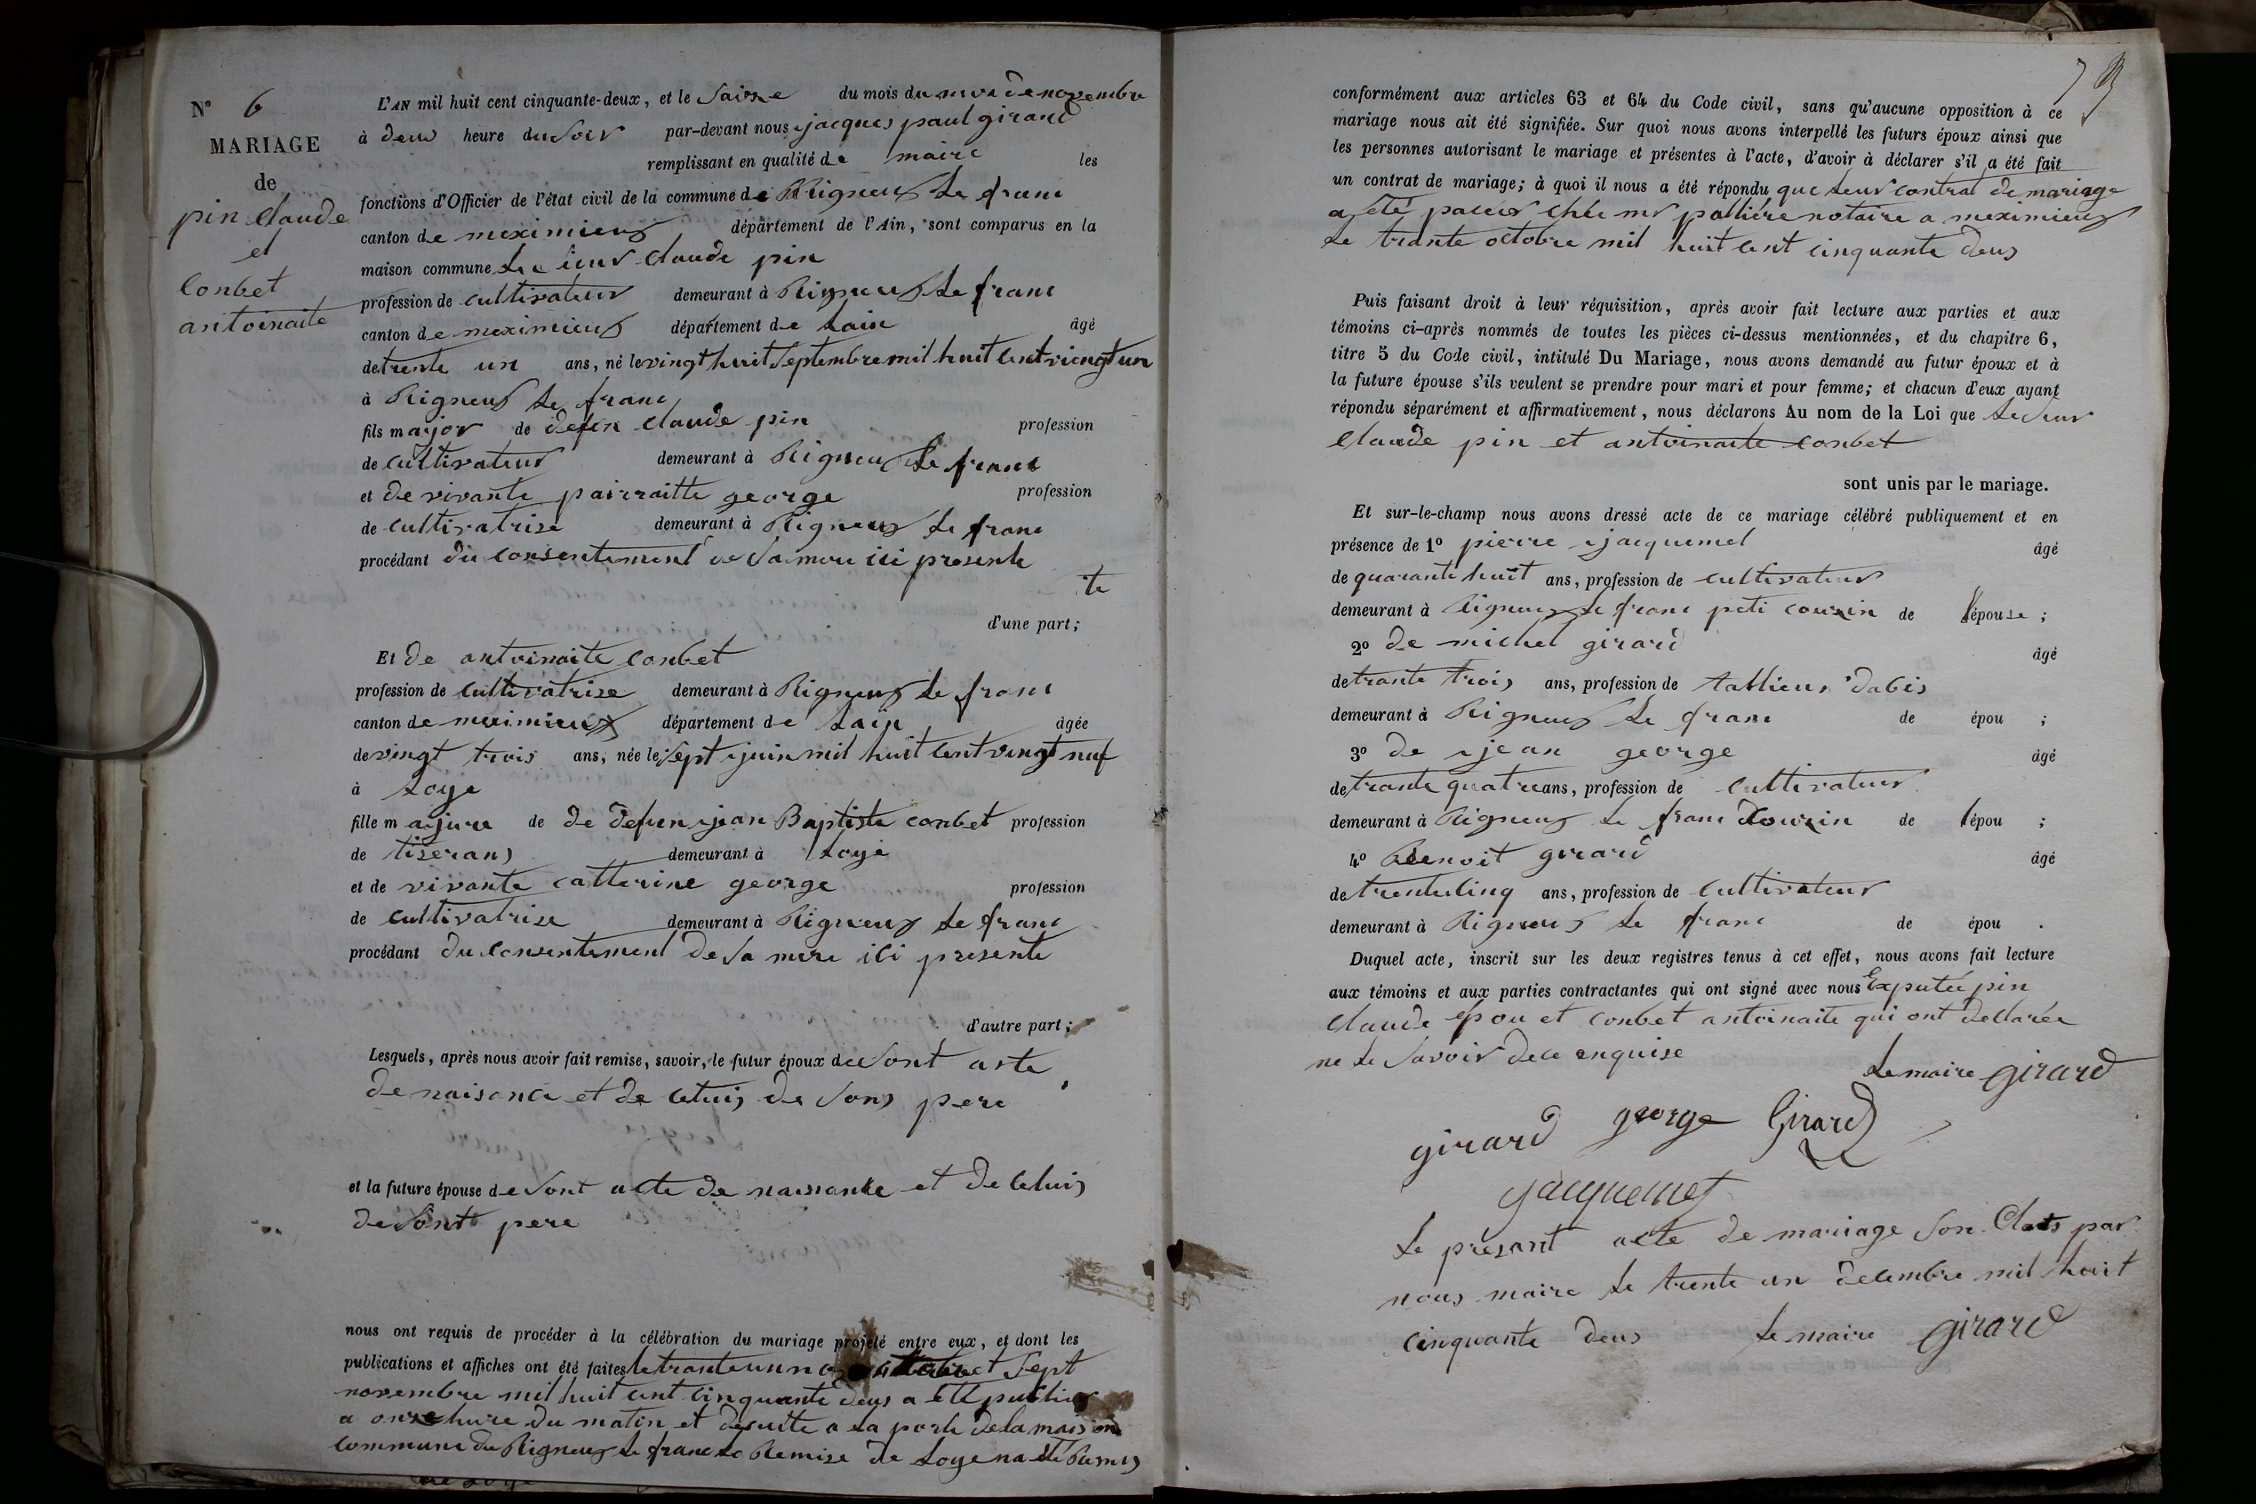 N° 6
MARIAGE
de
pin claude
et
Conbet
antoinaite
L'AN mil huit cent cinquante-deux, et le Saize du mois du mois de novembre
à deus heure du Soir par-devant nous jacques paul girard
remplissant en qualité de maire les
fonctions d'Officier de l'état civil de la commune de Rigneus Le franc
canton de meximieus département de l'Ain, sont comparus en la
maison commune Le sieur Claude pin
profession de cultivateur demeurant à Rigneus Le franc
canton de meximieus département de Lain âgé
de trente un ans, né le vingt huit Septembre mil huit Cent viengt un
à Rigneus Le franc
fils major de defen Claude pin profession
de cultivateur demeurant à Rigneus Le franc
et de vivante pairraitte george profession
de cultivatrise demeurant à Rigneus Le franc
procédant du consentement de Sa mere ici presente
te
d'une part;
Et de antoinaite Conbet
profession de cultivatrise demeurant à Rigneus Le franc
canton de meximieux département de Lain âgée
de vingt trois ans, née le Sept juin mil huit Cent vingt nuf
à Loye
fille m ajure de de defen jean Baptiste conbet profession
de tiserans demeurant à Loye
et de vivante catterine george profession
de cultivatrise demeurant à Rigneus Le franc
procédant du Consentement de Sa mere ici presente
d'autre part;
Lesquels, après nous avoir fait remise, savoir, le futur époux de Sont acte
de naisance et de Celuis de Sons pere
et la future épouse de Sont acte de naissance et de Celuis
de Sont pere
nous ont requis de procéder à la célébration du mariage projeté entre eux, et dont les
publications et affiches ont été faites le trante un octobre et Sept
novembre mil huit cent cinquante deus a été publier
a onze hure du matin et desuite a la porte de la maison
commune de Rigneus Le franc Le Remise de Loye na été Remis
73
conformément aux articles 63 et 64 du Code civil, sans qu'aucune opposition à ce
mariage nous ait été signifiée. Sur quoi nous avons interpellé les futurs époux ainsi que
les personnes autorisant le mariage et présentes à l'acte, d'avoir à déclarer s'il a été fait
un contrat de mariage; à quoi il nous a été répondu que Leur contrat de mariage
a été passer Chée mr pallière notaire a meximieus
Le trante octobre mil huit Cent cinquante deus
Puis faisant droit à leur réquisition, après avoir fait lecture aux parties et aux
témoins ci-après nommés de toutes les pièces ci-dessus mentionnées, et du chapitre 6,
titre 5 du Code civil, intitulé Du Mariage, nous avons demandé au futur époux et à
la future épouse s'ils veulent se prendre pour mari et pour femme; et chacun d'eux ayant
répondu séparément et affirmativement, nous déclarons Au nom de la Loi que Le Sieur
Claude pin et antoinaite Conbet
sont unis par le mariage.
Et sur-le-champ nous avons dressé acte de ce mariage célébré publiquement et en
présence de 1° pierre jacquemet âgé
de quarante huit ans, profession de cultivateur
demeurant à Rigneus Le franc peti couzin de l'épouse;
2° de michel girard âgé
de trante trois ans, profession de tallieur dabis
demeurant à Rigneus Le franc de épou ;
3° de jean george âgé
de trante quatre ans, profession de cultivateur
demeurant à Rigneus Le franc Couzin de l'épou ;
4° Benoit girard âgé
de trente Cinq ans, profession de cultivateur
demeurant à Rigneus Le franc de épou .
Duquel acte, inscrit sur les deux registres tenus à cet effet, nous avons fait lecture
aux témoins et aux parties contractantes qui ont signé avec nous Exputée pin
Claude épou et Conbet antoinaite qui ont declarée
ne Le Savoir de ce enquise
Le maire girard
girard george Girard
jacquemet
Le presant acte de mariage Son Clots par
nous maire Le trente un decembre mil huit
cinquante deus Le maire girard